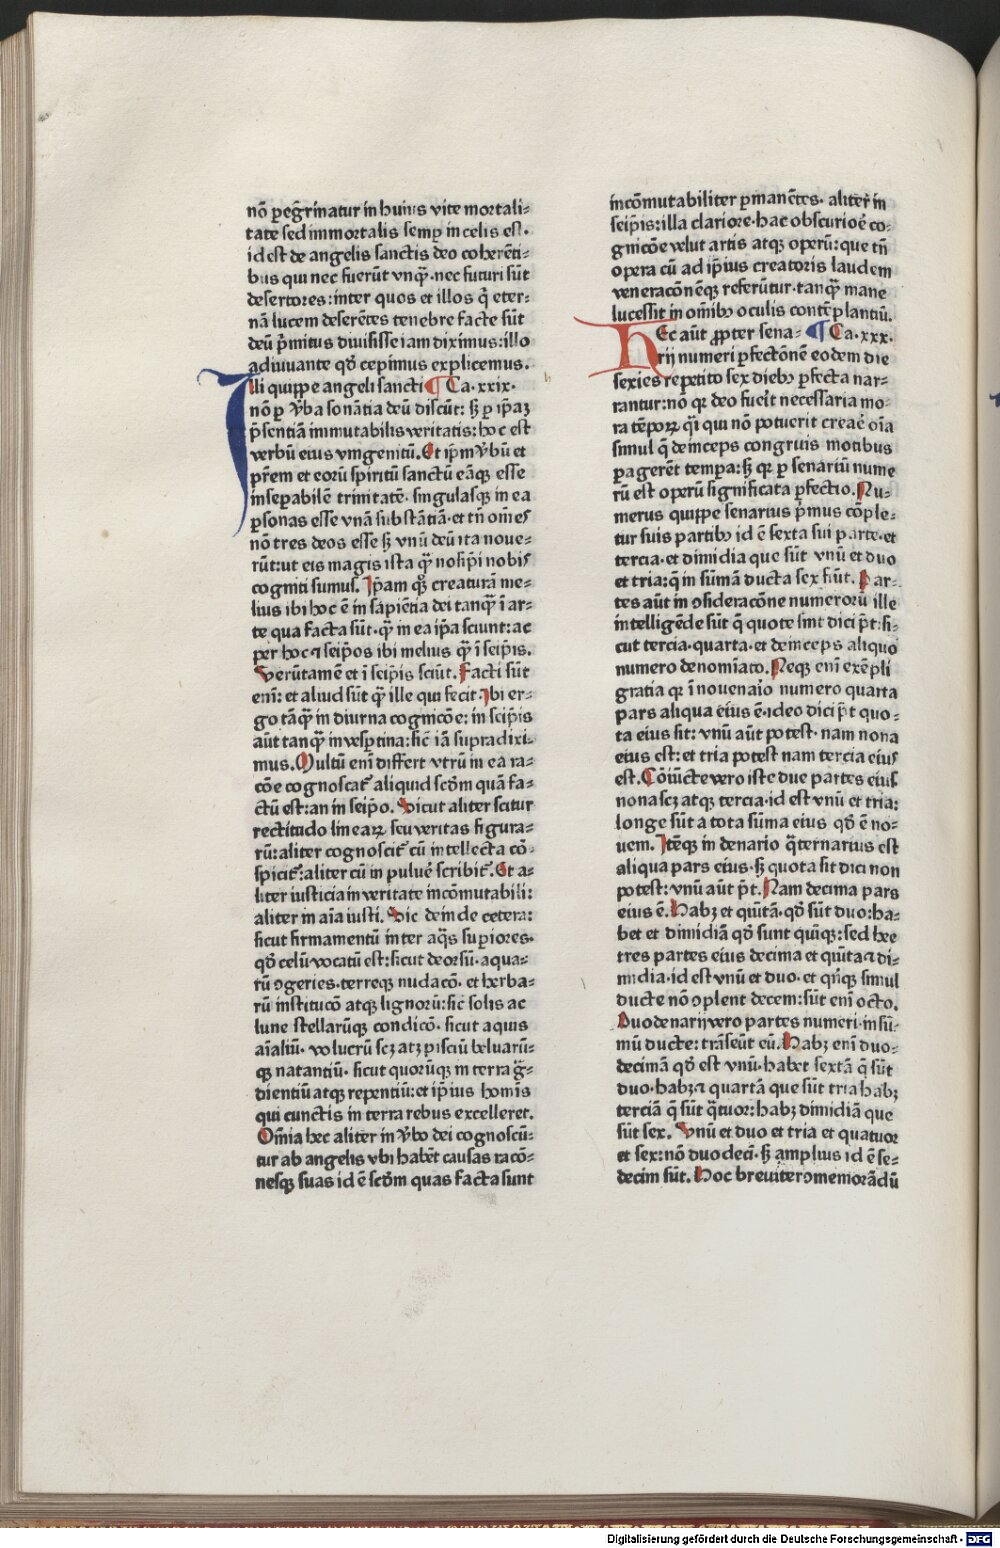 nō ꝑeg̃rinatur in huius vite mortali⸗
tate sed immortalis semꝑ in celis est.
id est de angelis sanctis deo coherēti⸗
bus qui nec fuerūt vnqͣꝫ. nec futuri sūt
desertores: inter quos et illos q̇ eter⸗
nā lucem deserētes tenebre facte sūt
deū p̄mitus diuisisse iam diximus: illo
adiuuante qđ cepimus explicemus.
Illi quippe angeli sancti ¶ Ca. xxix.
nō ꝑ v̄ba sonātia deū discūt: sꝫ ꝑ ip̄aꝫ
p̄sentiā immutabilis veritatis: hoc est
verbū eius vnigenitū. Et ip̄m v̄bū et
pr̄em et eorū spiritū sanctū eāqꝫ esse
inseꝑabilē trinitatē. singulasqꝫ in ea
ꝑsonas esse vnā substātiā. et tn̄ om̄es
nō tres deos esse sꝫ vnū deū ita noue⸗
rūt: ut eis magis ista qͣꝫ nosip̄i nobis
cogniti sumus. Ip̄am qͦꝫ creaturā me⸗
lius ibi hoc ē in sapiētia dei tanqͣꝫ ī ar⸗
te qua facta sūt. qͣꝫ in ea ip̄a sciunt: ac
per hoc ⁊ seip̄os ibi melius qͣꝫ ī seip̄is.
Verūtamē et ī seip̄is sciūt. Facti sūt
enī: et aliud sūt qͣꝫ ille qui fecit. Ibi er⸗
go tāqͣꝫ in diurna cognicōe: in seip̄is
aūt tanqͣꝫ in vesꝑtina: sic̄ iā supra dixi⸗
mus. Multū enī differt vtrū in ea ra⸗
cōe cognoscat᷑ aliquid scđm quā fa⸗
ctū est: an in seip̄o. Sicut aliter scitur
rectitudo linearꝫ seu veritas figura⸗
rū: aliter cognoscit᷑ cū intellecta cō⸗
spicit᷑: aliter cū in puluē scribit᷑. Et a⸗
liter iusticia in veritate incōmutabili:
aliter in aīa iusti. Sic deinde cetera:
sicut firmamentū inter aq̄s suꝑiores.
qđ celū vocatū est: sicut deorsū. aqua⸗
rū ꝯgeries. terreqꝫ nudacō. et herba⸗
rū institucō atqꝫ lignorū: sic̄ solis ac
lune stellarūqꝫ condicō. sicut aquis
aīaliū. volucrū scꝫ atꝫ pisciū beluarū⸗
qꝫ natantiū. sicut quorūqꝫ in terra g̃⸗
dientiū atqꝫ repentiū: et ip̄ius hom̄is
qui cunctis in terra rebus excelleret.
Om̄ia hec aliter in v̄bo dei cognoscū⸗
tur ab angelis vbi habēt causas racō⸗
nesqꝫ suas id ē scđm quas facta sunt
incōmutabiliter ꝑmanētes. aliter in
seip̄is: illa clariore. hac obscuriorē co⸗
gnicōe velut artis atqꝫ operū: que tn̄
opera cū ad ip̄ius creatoris laudem
veneracōnēqꝫ referūtur. tanqͣꝫ mane
lucessit in om̄ibꝫ oculis contēplantiū.
Hec aūt ꝓpter sena⸗ ¶ Ca. xxx.
rij numeri ꝑfectōnē eodem die
sexies repetito sex diebꝫ ꝑfecta nar⸗
rantur: nō qꝛ deo fuerit necessaria mo⸗
ra tēporꝫ q̄si qui nō potuerit creaē oīa
simul q̄ deinceps congruis motibus
ꝑagerēt tempa: sꝫ qꝛ ꝑ senariū nume
rū est operū significata ꝑfectio. Nu⸗
merus quippe senarius p̄mus cōple⸗
tur suis partibꝫ id ē sexta sui parte. et
tercia. et dimidia que sūt vnū et duo
et tria: q̄ in sūmā ducta sex fiūt. Par⸗
tes aūt in ꝯsideracōne numerorū ille
intelligēde sūt q̄ quote sint dici p̄t: si⸗
cut tercia. quarta. et deinceps aliquo
numero denomīato. Neqꝫ enī exēpli
gratia qꝛ ī nouenario numero quarta
pars aliqua eius ē. ideo dici p̄t quo⸗
ta eius sit: vnū aūt potest. nam nona
eius est: et tria potest nam tercia eius
est. Cōiūcte vero iste due partes eius
nona scꝫ atqꝫ tercia. id est vnū et tria:
longe sūt a tota sūma eius qđ ē no⸗
uem. Itēqꝫ in denario q̄ternarius est
aliqua pars eius. sꝫ quota sit dici non
potest: vnū aūt p̄t. Nam decima pars
eius ē. Habꝫ et quītā. qđ sūt duo: ha⸗
bet et dimidiā qđ sunt quīqꝫ: sed hee
tres partes eius decima et quīta ⁊ di⸗
midia. id est vnū et duo. et qn̄qꝫ simul
ducte nō ꝯplent decem: sūt enī octo.
Duodenarij vero partes numeri in sū⸗
mū ducte: trāseūt eū. Habꝫ enī duo⸗
decimā qđ est vnū. habet sextā q̄ sūt
duo. habꝫ ⁊ quartā que sūt tria habꝫ
terciā q̄ sūt q̄tuor: habꝫ dimidiā que
sūt sex. Vnū et duo et tria et quatuor
et sex: nō duodecī. sꝫ amplius id ē se⸗
decim sūt. Hoc breuiter ꝯmemorādū
Digitalisierung gefördert durch die Deutsche Forschungsgemeinschaft - DFG